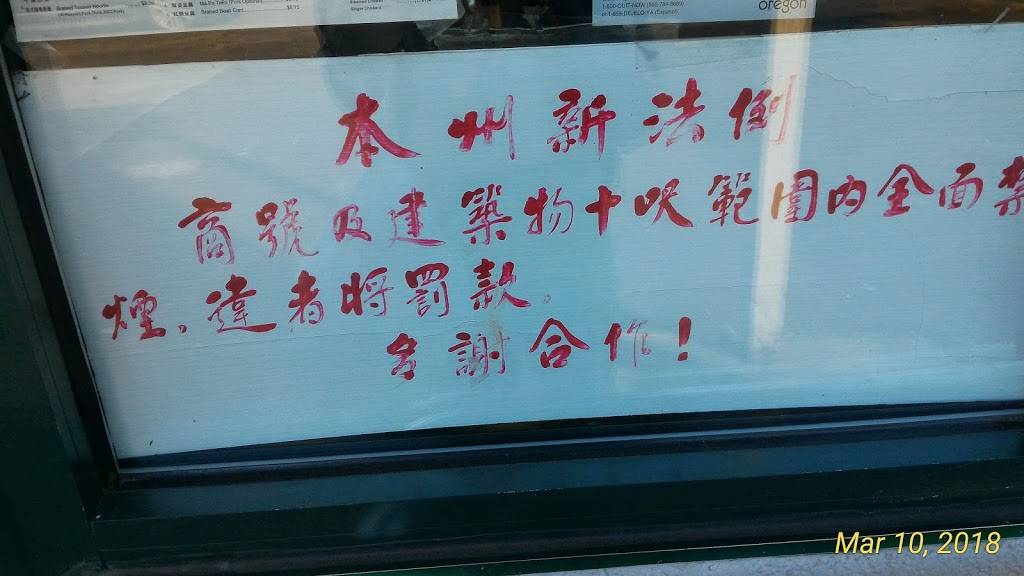 Ma Po Tofu (Pork Optional)
Braised Beef Cord $8.75
1-800-QUIT-NOW (800-784-8669)
or 1-855-DEJELO-YA (Español)
oregon
本州新法例
商號及建築物十呎範圍內全面禁
煙，違者將罰款。
多謝合作！
Mar 10, 2018